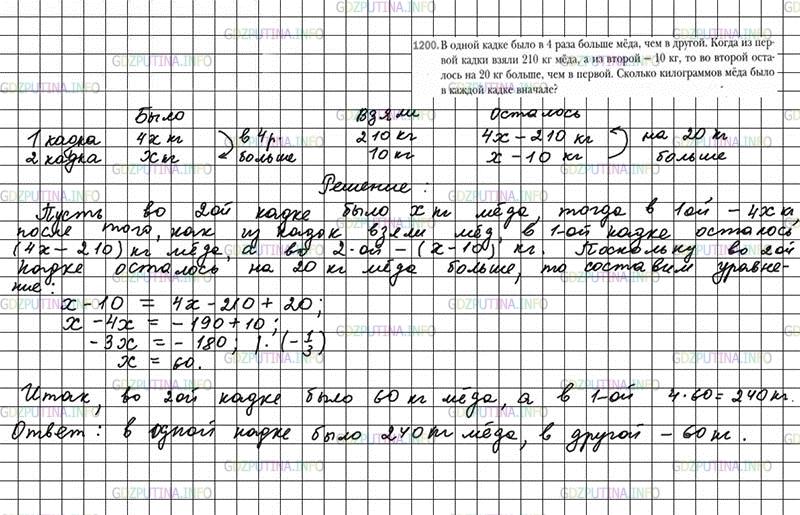 1200. В одной кадке было в 4 раза больше мёда, чем в другой. Когда из пер-
вой кадки взяли 210 кг мёда, а из второй – 10 кг, то во второй оста-
лось на 20 кг больше, чем в первой. Сколько килограммов мёда было
в каждой кадке вначале?
Было Взяли Осталось
1 кадка 4х кг в 4 р. 210 кг 4х – 210 кг на 20 кг
2 кадка х кг больше 10 кг х – 10 кг больше
Решение:
Пусть во 2ой кадке было х кг мёда, тогда в 1ой – 4х кг,
после того, как из кадок взяли мёд, в 1-ой кадке осталось
(4х – 210) кг мёда, а во 2-ой – (х – 10) кг. Поскольку во 2ой
кадке осталось на 20 кг мёда больше, то составим уравне-
ние:
х – 10 = 4х – 210 + 20;
х – 4х = – 190 + 10;
– 3х = – 180; | · (– 1/3)
х = 60.
Итак, во 2ой кадке было 60 кг мёда, а в 1-ой 4·60 = 240 кг.
Ответ: в одной кадке было 240 кг мёда, в другой – 60 кг.
GDZPUTINA.INFO